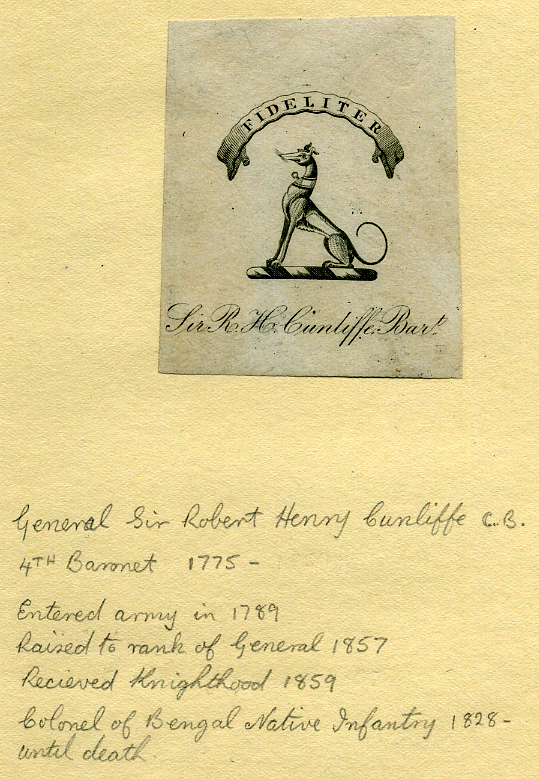 FIDELITER
Sir R. H. Cunliffe, Bart.
General Sir Robert Henry Cunliffe C.B.
4TH Baronet 1775 -
Entered army in 1789
Raised to rank of General 1857
Recieved Knighthood 1859
Colonel of Bengal Native Infantry 1828-
until death.